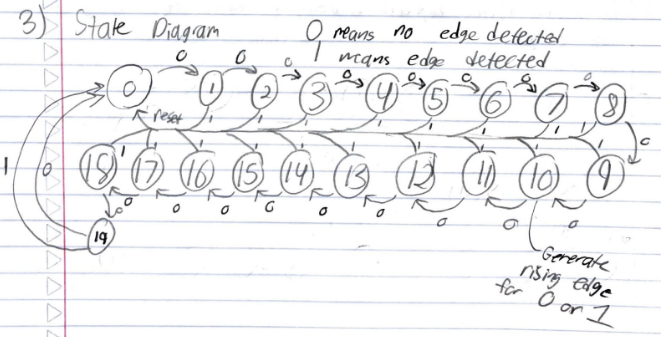 3) State Diagram
0 means no edge detected
1 means edge detected
0 0 0 0 0 0 0 0
0 1 2 3 4 5 6 7 8
reset
1 1 1 1 1 1 1
0
1 1 1 1 1 1 1 1
18 17 16 15 14 13 12 11 10 9
1 0
0 0 0 0 0 0 0 0 0 0
19
Generate
rising edge
for 0 or 1